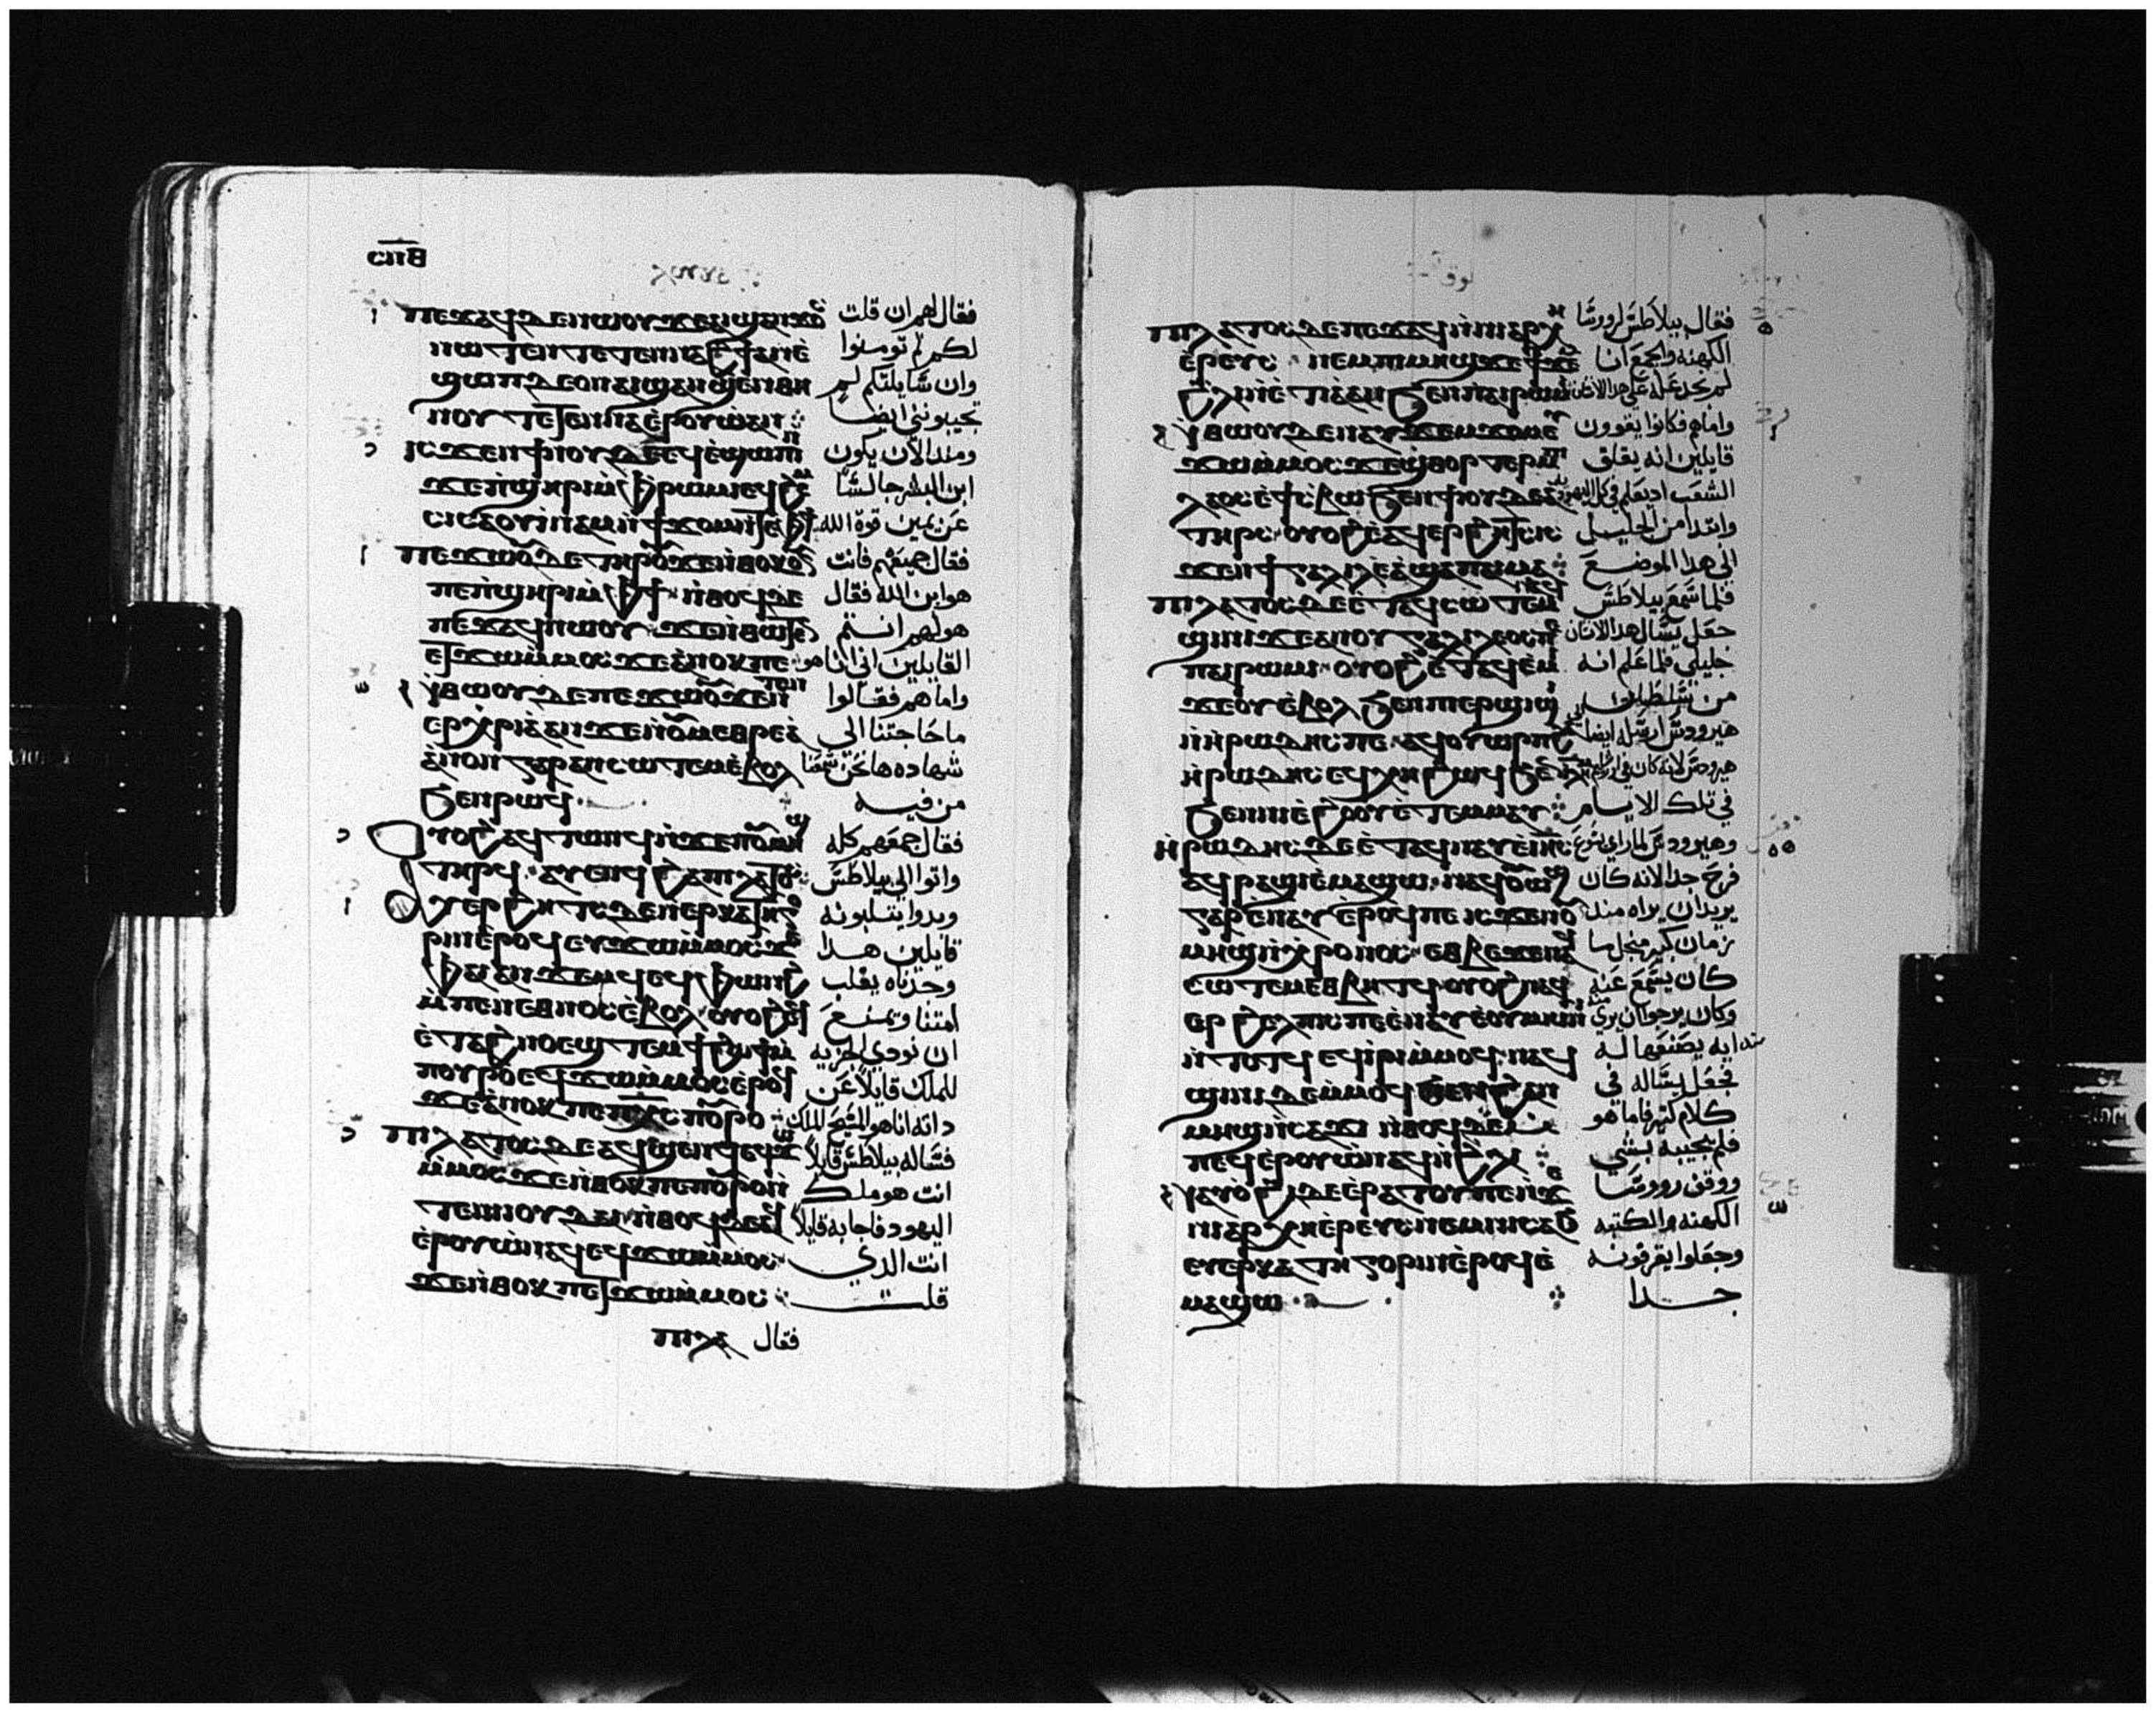 ⲥⲡⲑ
ⲡⲉϫⲁϥ ⲇⲉ ⲛⲱⲟⲩ ϫⲉ ⲁⲓϣⲁⲛϫⲟⲥ فقال لهم ان قلت
ⲛⲱⲧⲉⲛ ⲧⲉⲧⲉⲛⲛⲁϩϯ ⲁⲛ ⲉ لكم لم تومنوا
ϣⲱⲡ ⲇⲉ ⲟⲛ ⲁⲓϣⲁⲛϣⲉⲛ ⲑⲏ وان سايلتكم لم
ⲛⲟⲩ ⲧⲉⲧⲉⲛⲛⲁⲉⲣⲟⲩⲱ ⲁⲛ تجيبونني ايضا
ⲓⲥϫⲉⲛ ϯⲛⲟⲩ ⲇⲉ ⲉϥⲉϣⲱⲡⲓ ومند الان يكون
ϫⲉ ⲡϣⲏⲣⲓ ⲙⲫⲣⲱⲙⲓ ⲉϥϩⲉ ابن البشر جالسا
ⲥⲁⲟⲩⲓⲛⲁⲙ ⲛϯϫⲟⲙ ⲛⲧⲉ ⲫϯ عن يمين قوة الله
ⲡⲉϫⲱⲟⲩ ⲇⲉ ⲧⲏⲣⲟⲩ ϫⲉ ⲛⲑⲟⲕ ⲟⲩⲛ فقال جميعهم فانت
ⲡⲉ ⲡϣⲏⲣⲓ ⲙⲫϯ ⲛⲑⲟϥ ⲇⲉ هو ابن الله فقال
ⲡⲉϫⲁϥ ⲛⲱⲟⲩ ϫⲉ ⲛⲑⲱⲧⲉⲛ هو لهم انتم
ⲉⲧϫⲱ ⲙⲙⲟⲥ ϫⲉ ⲁⲛⲟⲕ ⲡⲉ القايلين اني انا هو
ⲛⲑⲱⲟⲩ ⲇⲉ ⲡⲉϫⲱⲟⲩ ϫⲉ ⲧⲉⲛ واما هم فقالوا
ⲉⲣⲭⲣⲓⲁ ⲁⲛ ϫⲉ ⲙⲙⲉⲑⲣⲉ ⲁ ما حاجتنا الى
ⲁⲛⲟⲛ ⲅⲁⲣ ⲁⲛⲥⲱⲧⲉⲙ ⲉⲃⲟⲗ شهاده ها نحن سمعنا
ϧⲉⲛ ⲣⲱϥ من فيه
ⲟⲩⲟϩ ⲁϥⲧⲱⲛϥ ⲛϫⲉ ⲡⲟⲩⲙⲏϣ فقال جمعهم كله
ⲧⲏⲣϥ ⲁⲩⲉⲛϥ ϩⲁ ⲡⲓⲗⲁⲧⲟⲥ واتوا الي بيلاطس
ⲁⲩⲉⲣϩⲏⲧⲥ ⲇⲉ ⲛⲉⲣⲕⲁⲧⲏⲅⲟ وبدوا يتلبونه
ⲣⲓⲛ ⲉⲣⲟϥ ⲉⲩϫⲱ ⲙⲙⲟⲥ ϫⲉ قايلين هدا
ⲫⲁⲓ ⲁⲛϫⲉⲙϥ ⲉϥⲫⲱⲛϩ وجدناه يقلب
ⲙⲡⲉⲛⲉⲑⲛⲟⲥ ⲉⲃⲟⲗ ⲟⲩⲟϩ ⲉϥ امتنا ويمنع
ⲉⲧⲁϩⲛⲟ ⲉϣⲧⲉⲙϯϩⲱϯ ⲙ ان نودي الجزيه
ⲡⲟⲩⲣⲟ ⲉϥϫⲱ ⲙⲙⲟⲥ ⲉⲣⲟϥ للملك قايلا عن
ϫⲉ ⲁⲛⲟⲕ ⲡⲉ ⲡⲭⲥ ⲡⲟⲩⲣⲟ داته انا هو المسيح الملك
ⲡⲓⲗⲁⲧⲟⲥ ⲇⲉ ⲁϥϣⲉⲛϥ ⲉϥϫⲱ فساله بيلاطس قايلا
ⲙⲙⲟⲥ ϫⲉ ⲛⲑⲟⲕ ⲡⲉ ⲡⲟⲩⲣⲟ ⲛ انت هو ملك
ⲧⲉ ⲛⲓⲓⲟⲩⲇⲁⲓ ⲛⲑⲟϥ ⲇⲉ ⲁϥ اليهود فاجابه قايلا
ⲉⲣⲟⲩⲱ ⲛⲁϥ ⲉϥϫⲱ ⲙⲙⲟⲥ انت الدي
ϫⲉ ⲛⲑⲟⲕ ⲡⲉⲧϫⲱ ⲙⲙⲟⲥ قلت
ⲡⲓⲗⲁ فقال
ⲡⲓⲗⲁⲧⲟⲥ ⲇⲉ ⲡⲉϫⲁϥ ⲛⲛⲓⲁⲣⲭⲏ فقال بيلاطس لروسا
ⲉⲣⲉⲩⲥ ⲛⲉⲙ ⲡⲓⲙⲏϣ ϫⲉ ϯϫⲉⲙ الكهنه والجمع انا
ϩⲗⲓ ⲛⲉⲧⲓⲁ ⲁⲛ ϧⲉⲛ ⲡⲁⲓⲣⲱⲙⲓ لم نجد عله على هدا الانسان
ⲛⲑⲱⲟⲩ ⲇⲉ ⲛⲁⲩϫⲉⲙϫⲟⲙ ⲉ واما هم فكانوا يقوون
ϫⲱ ⲙⲙⲟⲥ ϫⲉ ϥϣⲑⲟⲣⲧⲉⲣ ⲙⲡⲓ قايلين انه يقلق
ⲗⲁⲟⲥ ⲉϥϯⲥⲃⲱ ϧⲉⲛ ϯⲓⲟⲩⲇⲉⲁ الشعب اد يعلم في كل اليهوديه
ⲧⲏⲣⲥ ⲟⲩⲟϩ ⲁϥⲉⲣϩⲏⲧⲥ وابتدا من الجليل
ⲓⲥϫⲉⲛ ϯⲅⲁⲗⲓⲗⲉⲁ ϣⲁ ⲡⲁⲓⲙⲁ الى هدا الموضع
ⲡⲓⲗⲁⲧⲟⲥ ⲇⲉ ⲉⲧⲁϥⲥⲱⲧⲉⲙ فلما سمع بيلاطس
ϣⲓⲛⲓ ϫⲉ ⲁⲛ ⲟⲩⲅⲁⲗⲓⲗⲉⲟⲥ ⲡⲉ جعل يسال هدا الانسان
ⲡⲁⲓⲣⲱⲙⲓ ⲟⲩⲟϩ ⲉⲧⲁϥⲉⲙⲓ جليلي فلما علم انه
ϫⲉ ⲟⲩⲉⲃⲟⲗ ϧⲉⲛ ⲡⲉⲣϣⲓϣⲓ من سلطان
ⲛⲏⲣⲱⲇⲏⲥ ⲡⲉ ⲁϥⲟⲩⲟⲣⲡϥ هيرودس ارسله ايضا
ⲏⲣⲱⲇⲏⲥ ⲉϥⲭⲏ ϩⲱϥ ϧⲉⲛ هيرودس لانه كان في
ϧⲉⲛ ⲛⲓⲉϩⲟⲟⲩ ⲉⲧⲉⲙⲙⲁⲩ في تلك الايام
ⲏⲣⲱⲇⲏⲥ ⲇⲉ ⲉⲧⲁϥⲛⲁⲩ ⲉⲓⲏⲥ وهيرودس لما راي يسوع
ⲁϥⲣⲁϣⲓ ⲉⲙⲁϣⲱ ⲛⲁϥⲟⲩⲱϣ فرح جدا لانه كان
ⲅⲁⲣ ⲉⲛⲁⲩ ⲉⲣⲟϥ ⲡⲉ ⲓⲥϫⲉⲛ ⲟⲩ يريد ان يراه مند
ⲙⲏϣ ⲛⲭⲣⲟⲛⲟⲥ ⲉⲑⲃⲉ ϫⲉ ⲛⲁϥ زمان كبير منجل ما
ⲥⲱⲧⲉⲙ ⲉⲑⲃⲏⲧϥ ⲟⲩⲟϩ ⲛⲁϥ كان يسمع عنه
ⲉⲣϩⲉⲗⲡⲓⲥ ⲡⲉ ⲉⲛⲁⲩ ⲉⲟⲩⲙⲏⲓⲛⲓ وكان يرجوا ان يري منه
ⲛⲧⲟⲧϥ ⲉϥⲓⲣⲓ ⲙⲙⲟϥ ⲛⲁϥ ايه يصنعها له
ϣⲓⲛⲓ ⲇⲉ ⲙⲙⲟϥ ϧⲉⲛ ϩⲁⲛ فجعل يساله في
ⲙⲏϣ ⲛⲥⲁϫⲓ ⲛⲑⲟϥ ⲇⲉ كلام كتير فاما هو
ⲡⲉϥⲉⲣⲟⲩⲱ ⲛⲁϥ ⲛϩⲗⲓ فلم يجيبه بشي
ⲛⲁⲩⲟϩⲓ ⲇⲉ ⲉⲣⲁⲧⲟⲩ ⲡⲉ ⲛϫⲉ ووقف روسا
ⲛⲓⲁⲣⲭⲏⲉⲣⲉⲩⲥ ⲛⲉⲙ ⲛⲓⲥⲁϧ الكهنه والكتبه
ⲉⲩⲉⲣⲕⲁⲧⲏⲅⲟⲣⲓⲛ ⲉⲣⲟϥ ⲉ وجعلوا يقرفونه
ⲙⲁϣⲱ جدا